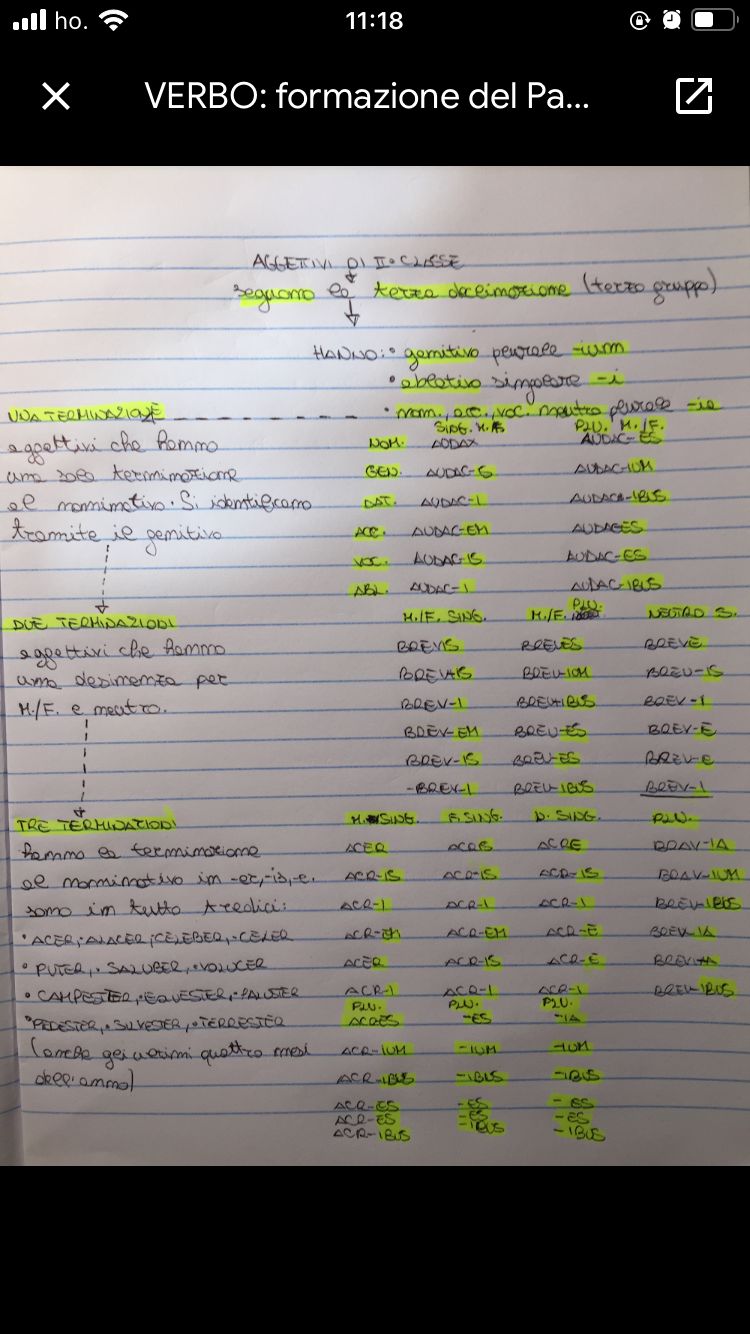 ho.
11:18
VERBO: formazione del Pa...
AGGETIVI DI II° CLASSE
seguono la terza declinazione (terzo gruppo)
HANNO: • genitivo plurale -ium
• ablativo singolare -i
UNA TERMINAZIONE • nom., acc., voc. neutro plurale -ia
SING. M. F. PLU. M./F.
aggettivi che hanno NOM. AUDAX AUDAC-ES
una sola terminazione GEN. AUDAC-IS AUDAC-IUM
al nominativo. Si identificano DAT. AUDAC-I AUDAC-IBUS
tramite il genitivo ACC. AUDAC-EM AUDACES
VOC. AUDAC-IS AUDAC-ES
ABL. AUDAC-I AUDAC-IBUS
DUE TERMINAZIONI M./F. SING. M./F. PLU. NEUTRO S.
aggettivi che hanno BREVIS BREVES BREVE
una desinenza per BREV-IS BREV-IUM BREV-IS
M./F. e neutro. BREV-I BREV-IBUS BREV-I
BREV-EM BREV-ES BREV-E
BREV-IS BREV-ES BREV-E
-BREV-I BREV-IBUS BREV-I
TRE TERMINAZIONI M. SING. F. SING. N. SING. PLU.
hanno la terminazione ACER ACRIS ACRE BRAV-IA
al nominativo in -er,-is,-e. ACR-IS ACR-IS ACR-IS BRAV-IUM
sono in tutto tredici: ACR-I ACR-I ACR-I BREV-IBUS
• ACER, ALACER, CELEBER, • CELER ACR-EM ACR-EM ACR-E BREV-IA
• PUTER, • SALUBER, • VOLUCER ACER ACR-IS ACR-E BREV-IA
• CAMPESTER, • EQUESTER, • PALUSTER ACR-I ACR-I ACR-I BREV-IBUS
PLU. PLU. PLU.
• PEDESTER, • SILVESTER, • TERRESTER ACRES -ES -IA
(anche gli ultimi quattro mesi ACR-IUM -IUM -IUM
dell'anno) ACR-IBUS -IBUS -IBUS
ACR-ES -ES -ES
ACR-ES -ES -ES
ACR-IBUS -IBUS -IBUS